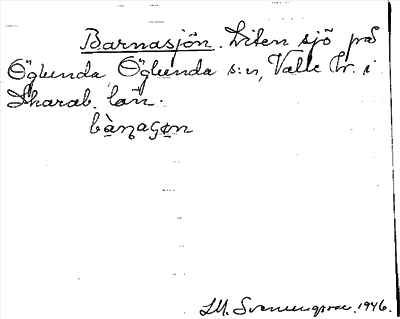 Barnasjön. Liten sjö på
Öglunda, Öglunda s:n, Valle hr. i
Skarab. län.
bàṇaʃɷn
I.M. Svenungsson. 1946.